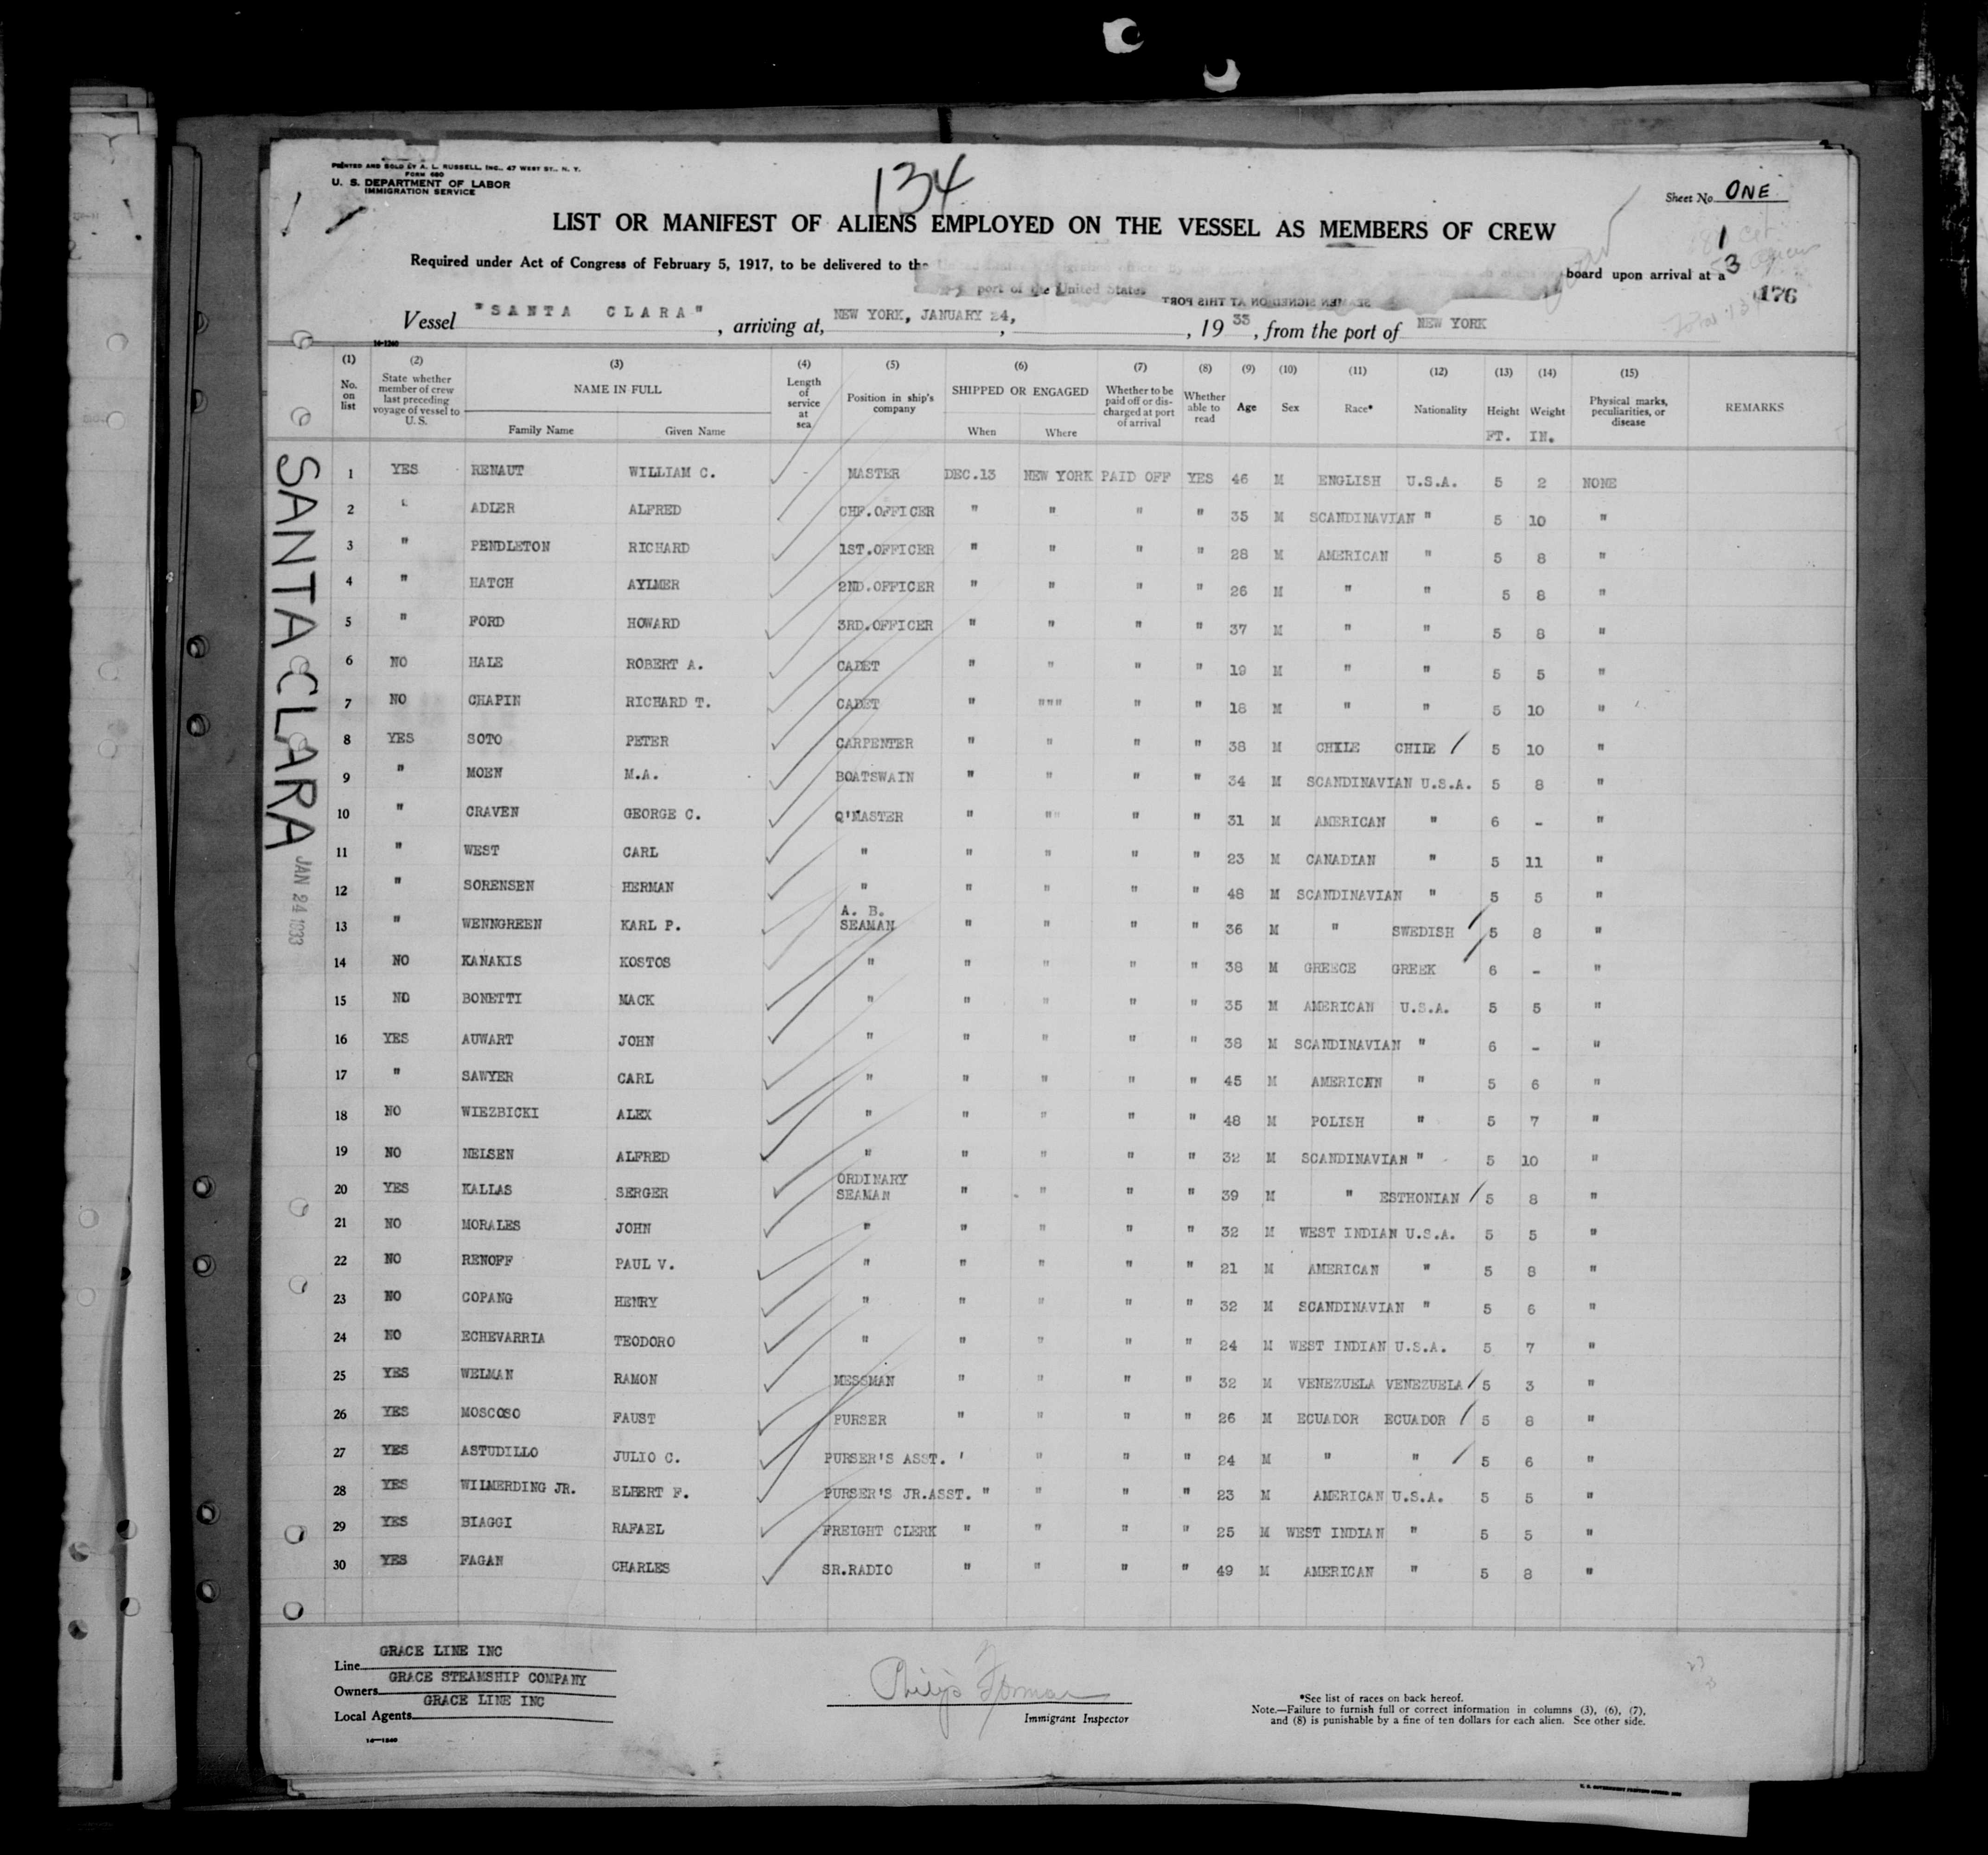 PRINTED AND SOLD BY A. L. RUSSELL, INC., 47 WEST ST., N. Y.
FORM 680
U. S. DEPARTMENT OF LABOR
IMMIGRATION SERVICE
134
Sheet No. ONE
LIST OR MANIFEST OF ALIENS EMPLOYED ON THE VESSEL AS MEMBERS OF CREW
1
Required under Act of Congress of February 5, 1917, to be delivered to the board upon arrival at a
3
port of the United States
SEAMEN SIGNED ON AT THIS PORT
176
Vessel "SANTA CLARA", arriving at, NEW YORK, JANUARY 24, , 1933, from the port of NEW YORK
14-1240
(1) No. on list (2) State whether member of crew last preceding voyage of vessel to U.S. (3) NAME IN FULL Family Name Given Name (4) Length of service at sea (5) Position in ship's company (6) SHIPPED OR ENGAGED When Where (7) Whether to be paid off or discharged at port of arrival (8) Whether able to read (9) Age (10) Sex (11) Race* (12) Nationality (13) Height FT. (14) Weight IN. (15) Physical marks, peculiarities, or disease REMARKS
1 YES RENAUT WILLIAM C. - MASTER DEC.13 NEW YORK PAID OFF YES 46 M ENGLISH U.S.A. 5 2 NONE
2 " ADLER ALFRED CHF.OFFICER " " " " 35 M SCANDINAVIAN " 5 10 "
3 " PENDLETON RICHARD 1ST.OFFICER " " " " 28 M AMERICAN " 5 8 "
4 " HATCH AYLMER 2ND.OFFICER " " " " 26 M " " 5 8 "
5 " FORD HOWARD 3RD.OFFICER " " " " 37 M " " 5 8 "
6 NO HALE ROBERT A. CADET " " " " 19 M " " 5 5 "
7 NO CHAPIN RICHARD T. CADET " """ " " 18 M " " 5 10 "
8 YES SOTO PETER CARPENTER " " " " 38 M CHILE CHILE 5 10 "
9 " MOEN M.A. BOATSWAIN " " " " 34 M SCANDINAVIAN U.S.A. 5 8 "
10 " CRAVEN GEORGE C. Q'MASTER " "" " " 31 M AMERICAN " 6 - "
11 " WEST CARL " " " " " 23 M CANADIAN " 5 11 "
12 " SORENSEN HERMAN " " " " " 48 M SCANDINAVIAN " 5 5 "
13 " WENNGREEN KARL P. A. B. SEAMAN " " " " 36 M " SWEDISH 5 8 "
14 NO KANAKIS KOSTOS " " " " " 38 M GREECE GREEK 6 - "
15 NO BONETTI MACK " " " " " 35 M AMERICAN U.S.A. 5 5 "
16 YES AUWART JOHN " " " " " 38 M SCANDINAVIAN " 6 - "
17 " SAWYER CARL " " " " " 45 M AMERICAN " 5 6 "
18 NO WIEZBICKI ALEX " " " " " 48 M POLISH " 5 7 "
19 NO NELSEN ALFRED " " " " " 32 M SCANDINAVIAN " 5 10 "
20 YES KALLAS SERGER ORDINARY SEAMAN " " " " 39 M " ESTHONIAN 5 8 "
21 NO MORALES JOHN " " " " " 32 M WEST INDIAN U.S.A. 5 5 "
22 NO RENOFF PAUL V. " " " " " 21 M AMERICAN " 5 8 "
23 NO COPANG HENRY " " " " " 32 M SCANDINAVIAN " 5 6 "
24 NO ECHEVARRIA TEODORO " " " " " 24 M WEST INDIAN U.S.A. 5 7 "
25 YES WELMAN RAMON MESSMAN " " " " 32 M VENEZUELA VENEZUELA 5 3 "
26 YES MOSCOSO FAUST PURSER " " " " 26 M ECUADOR ECUADOR 5 8 "
27 YES ASTUDILLO JULIO C. PURSER'S ASST. ' " " " 24 M " " 5 6 "
28 YES WILMERDING JR. ELBERT F. PURSER'S JR.ASST. " " " " 23 M AMERICAN U.S.A. 5 5 "
29 YES BIAGGI RAFAEL FREIGHT CLERK " " " " 25 M WEST INDIAN " 5 5 "
30 YES FAGAN CHARLES SR.RADIO " " " " 49 M AMERICAN " 5 8 "
SANTA CLARA
JAN 24 1933
Line GRACE LINE INC
Owners GRACE STEAMSHIP COMPANY
Local Agents GRACE LINE INC
14-1240
Philip Forman
Immigrant Inspector
*See list of races on back hereof.
Note.—Failure to furnish full or correct information in columns (3), (6), (7),
and (8) is punishable by a fine of ten dollars for each alien. See other side.